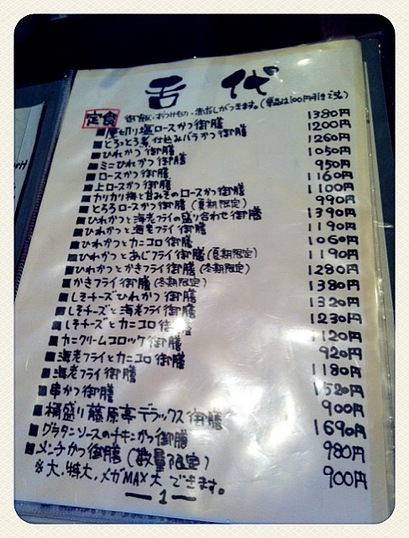 舌代
定食 御飯・おつけもの・赤出しがつきます。(単品は100円引きです)
■厚切り塩ロースかつ御膳 1380円
■とろっとろ煮仕込みバラかつ御膳 1200円
■ひれかつ御膳 1260円
■ミニひれかつ御膳 1050円
■ロースかつ御膳 950円
■上ロースかつ御膳 1160円
■カリカリ梅と甘みそのロースかつ御膳 1100円
■とろろロースかつ御膳(夏期限定) 990円
■ひれかつと海老フライの盛り合わせ御膳 1390円
■ひれかつと海老フライ御膳 1190円
■ひれかつとカニコロ御膳 1060円
■ひれかつとあじフライ御膳(夏期限定) 1190円
■ひれかつとかきフライ御膳(冬期限定) 1280円
■かきフライ御膳(冬期限定) 1380円
■しそチーズひれかつ御膳 1320円
■しそチーズと海老フライ御膳 1230円
■しそチーズとカニコロ御膳 1120円
■カニクリームコロッケ御膳 920円
■海老フライとカニコロ御膳 1180円
■海老フライ御膳 1520円
■串かつ御膳 900円
■桶盛り藤原亭デラックス御膳 1690円
■グラタンソースのチキンかつ御膳 980円
■メンチかつ御膳(数量限定) 900円
※大、特大、メガMAX大 できます。
― 1 ―